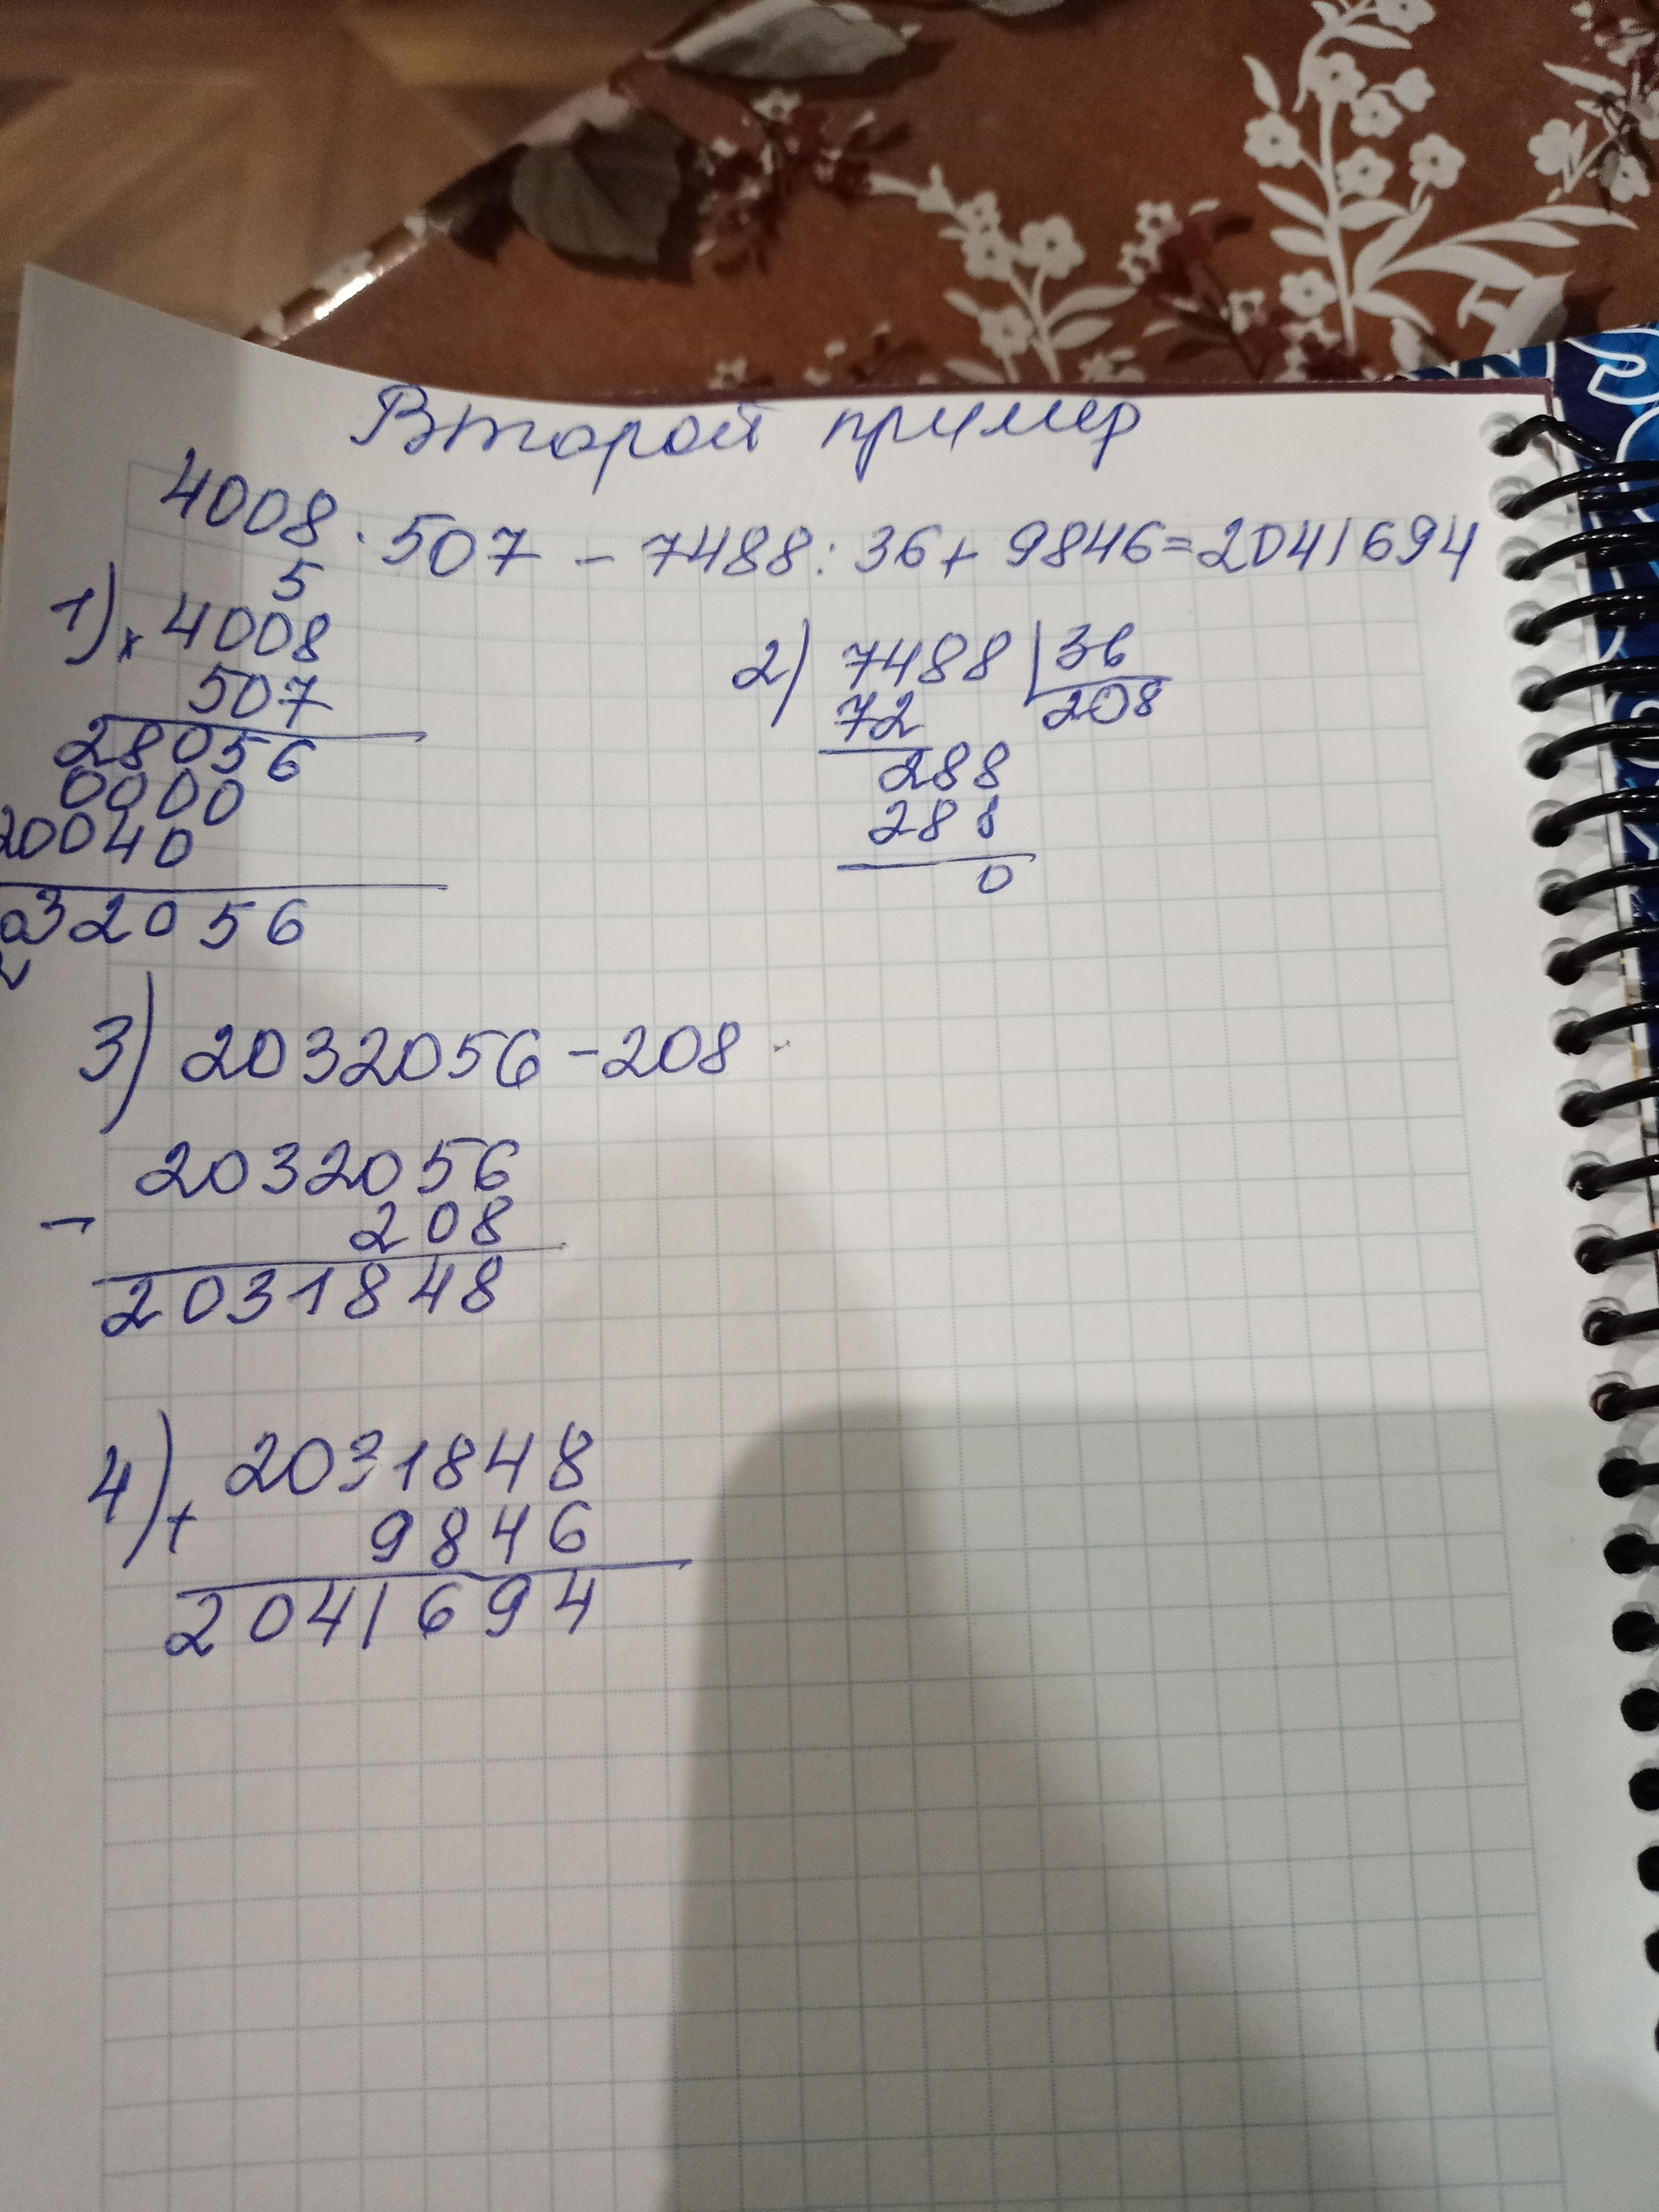 Второй пример
4008 · 507 - 7488 : 36 + 9846 = 2041694
5
1) × 4008
507
28056
0000
20040
032056
2) 7488 | 36
72 208
288
288
0
3) 2032056 - 208
2032056
- 208
2031848
4) + 2031848
9846
2041694